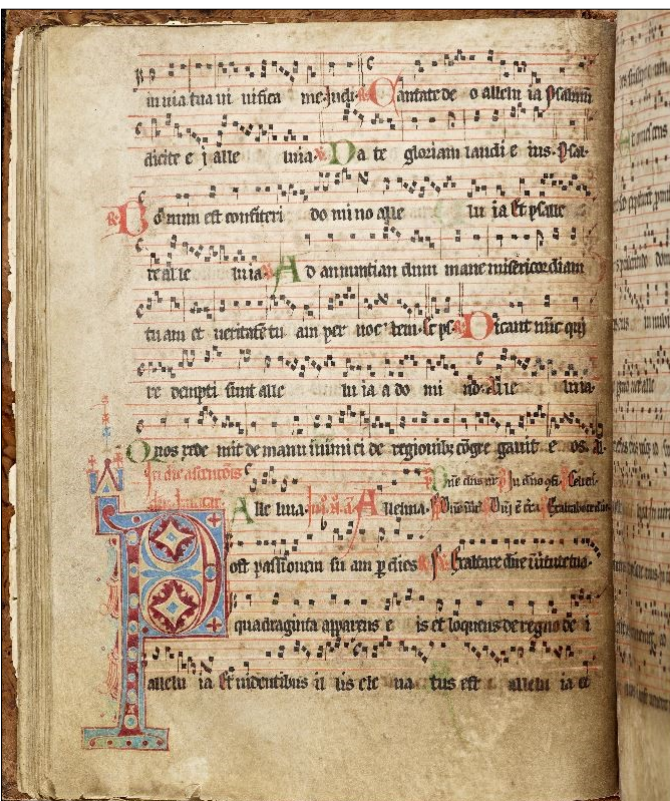 in uia tua ui uifica me. Judi. Cantate de o allelu ia Psalmū
dicite e i alle luia. Da te gloriam laudi e ius. Psal.
Bonum est confiteri do mi no alle lu ia Et psalle
re alle luia. Ad annuntian dum mane misericordiam
tuam et ueritatē tu am per noc tem. Et ps. Dicant nūc qui
re dempti sunt alle lu ia a do mi no. Alle luia.
Quos rede mit de manu inimici de regionibꝫ cōgre gauit e os. Al.
In die ascensiōis
Alle luia. Alleluia.
Post passionem su am p dies Exaltare dn̄e
quadraginta apparens e is et loquens de regno de i
allelu ia Et uidentibus il lis ele ua tus est allelu ia et